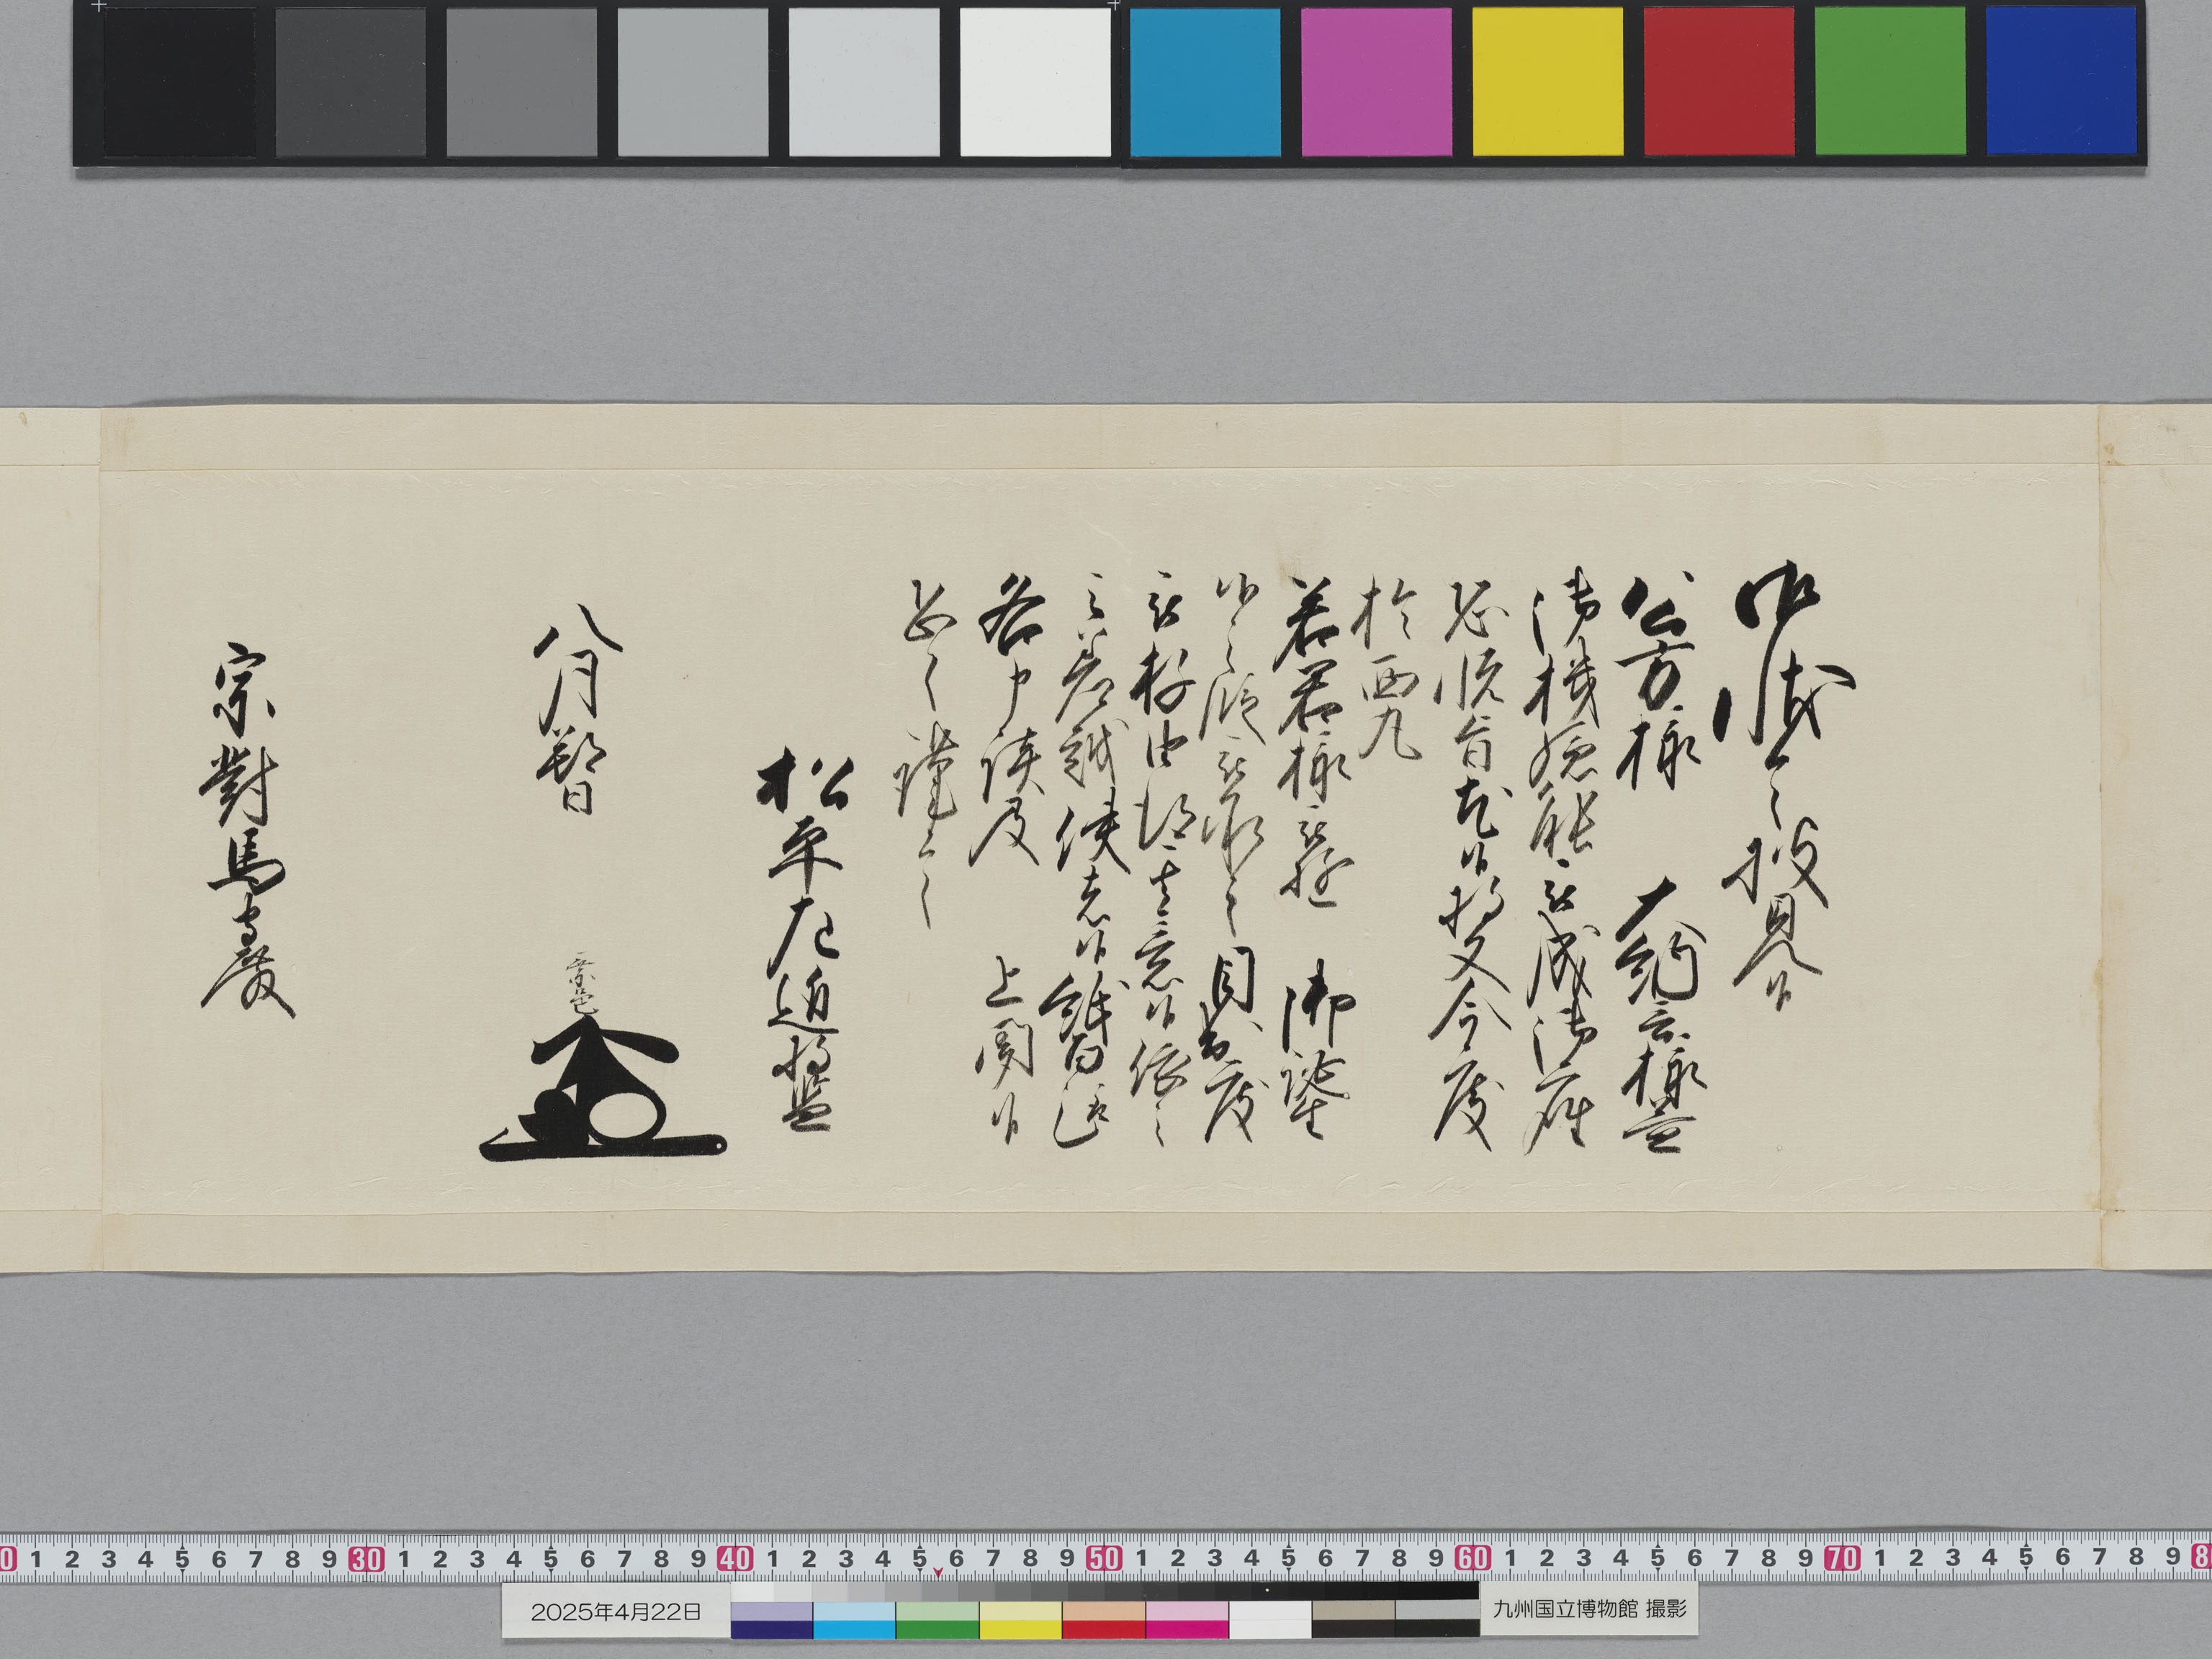 御状令披見候
公方様 大納言様益
御機嫌能被成御座
恐悦旨尤候将又今度
於西丸
若君様被遊 御誕生
候之段被承之 目出度
被存由得其意候依之
被差越使者候紙面趣
各申談及 上聞候
恐々謹言
松平左近将監
八月
乗邑
宗對馬守殿
0 1 2 3 4 5 6 7 8 9 30 1 2 3 4 5 6 7 8 9 40 1 2 3 4 5 6 7 8 9 50 1 2 3 4 5 6 7 8 9 60 1 2 3 4 5 6 7 8 9 70 1 2 3 4 5 6 7 8 9 8
2025年4月22日
九州国立博物館 撮影